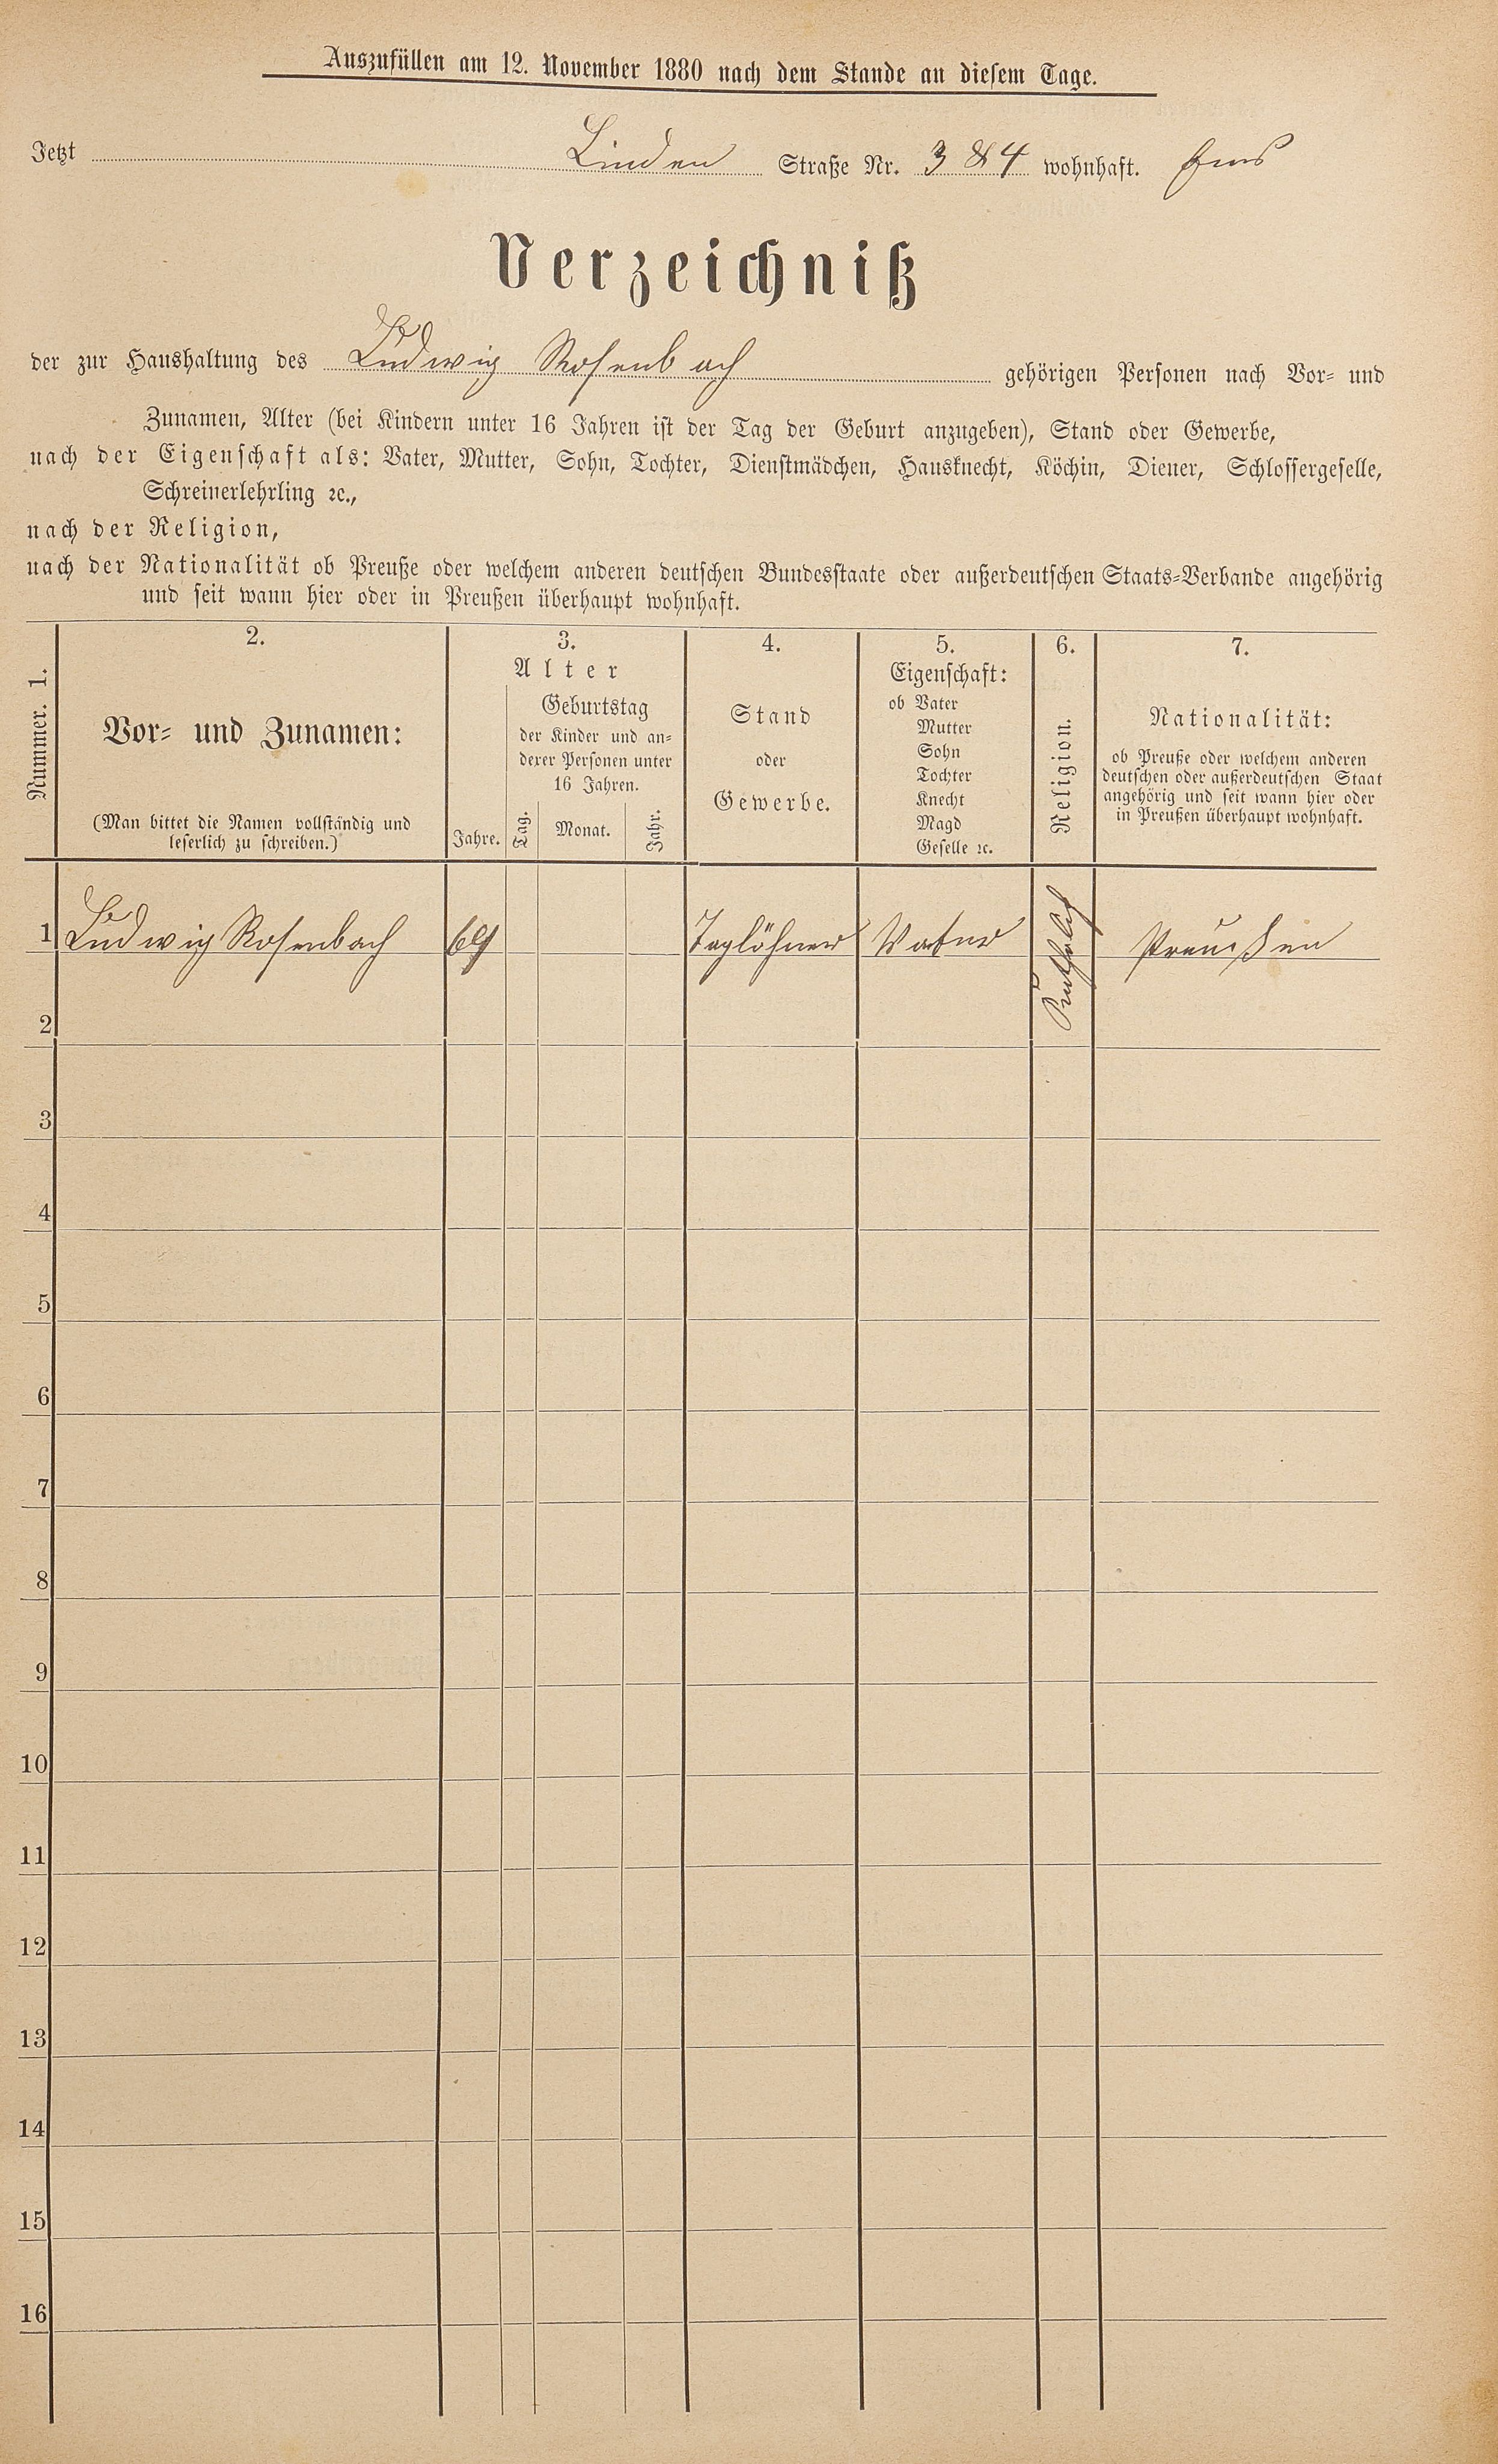 Auszufüllen am 12. November 1880 nach dem Stande an diesem Tage.
Jetzt Linden Straße Nr. 384 wohnhaft. Ems
Verzeichniß
der zur Haushaltung des Ludwig Rosenbach gehörigen Personen nach Vor- und
Zunamen, Alter (bei Kindern unter 16 Jahren ist der Tag der Geburt anzugeben), Stand oder Gewerbe,
nach der Eigenschaft als: Vater, Mutter, Sohn, Tochter, Dienstmädchen, Hausknecht, Köchin, Diener, Schlossergeselle,
Schreinerlehrling ꝛc.,
nach der Religion,
nach der Nationalität ob Preuße oder welchem anderen deutschen Bundesstaate oder außerdeutschen Staats-Verbande angehörig
und seit wann hier oder in Preußen überhaupt wohnhaft.
Nummer. 1.
2.
Vor- und Zunamen:
(Man bittet die Namen vollständig und
leserlich zu schreiben.)
3.
Alter
Jahre.
Geburtstag
der Kinder und an-
derer Personen unter
16 Jahren.
Tag. Monat. Jahr.
4.
Stand
oder
Gewerbe.
5.
Eigenschaft:
ob Vater
Mutter
Sohn
Tochter
Knecht
Magd
Geselle ꝛc.
6.
Religion.
7.
Nationalität:
ob Preuße oder welchem anderen
deutschen oder außerdeutschen Staat
angehörig und seit wann hier oder
in Preußen überhaupt wohnhaft.
1 Ludwig Rosenbach 69 Taglöhner Vater Preußen
2
3
4
5
6
7
8
9
10
11
12
13
14
15
16